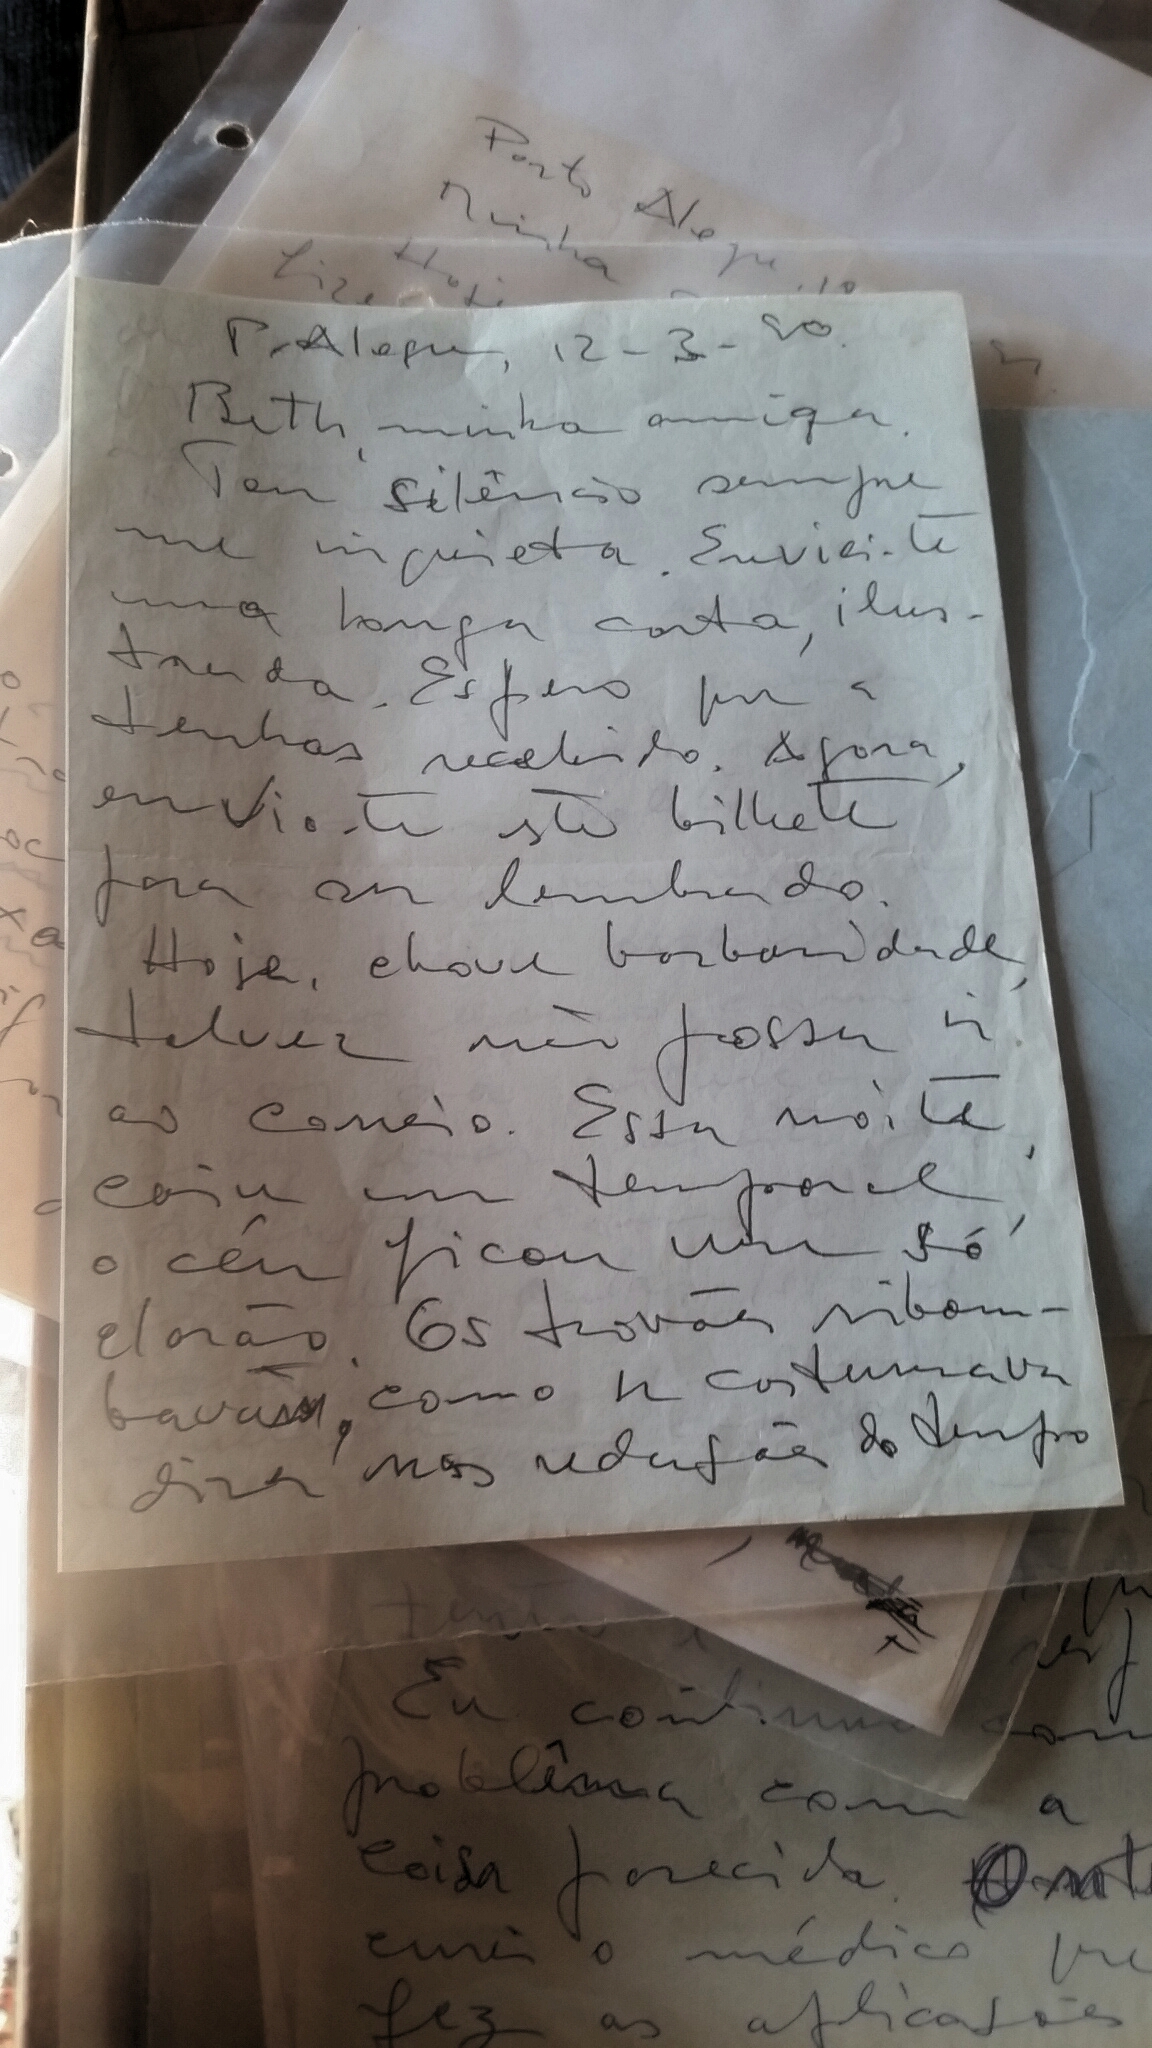 Porto Alegre
Minha
Hoje
P. Alegre, 12-3-90.
Beth, minha amiga.
Teu silêncio sempre
me inquieta. Enviei-te
uma longa carta, ilus-
trada. Espero que a
tenhas recebido. Agora,
envio-te este bilhete
para ser lembrado.
Hoje, chove barbaridade,
talvez não possa ir
ao correio. Essa noite,
caiu um temporal,
o céu ficou um só
clarão. Os trovões ribom-
bavam, como se costumava
dizer nas redações do tempo
Eu continuo com
problema com a
coisa parecida.
o médico que
fez as aplicações